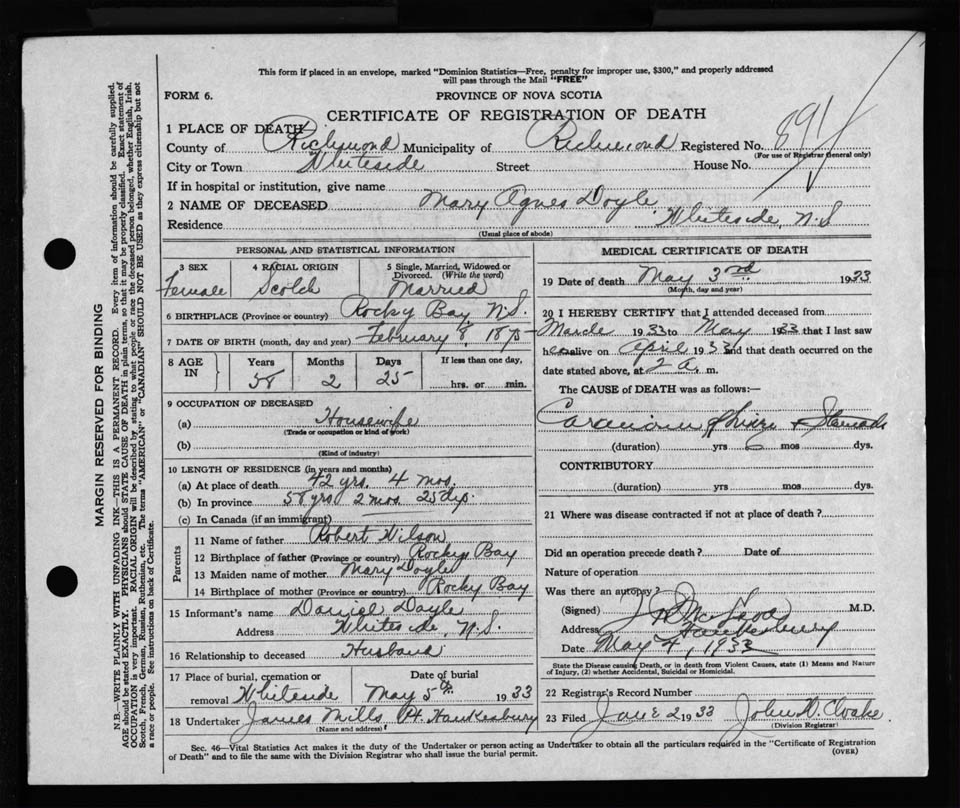 This form if placed in an envelope, marked "Dominion Statistics—Free, penalty for improper use, $300," and properly addressed
will pass through the Mail "FREE"
FORM 6.
PROVINCE OF NOVA SCOTIA
CERTIFICATE OF REGISTRATION OF DEATH
1 PLACE OF DEATH
County of Richmond Municipality of Richmond Registered No. 891
(For use of Registrar General only)
City or Town Whiteside Street House No.
If in hospital or institution, give name
2 NAME OF DECEASED Mary Agnes Doyle
Residence Whiteside, N.S
(Usual place of abode)
PERSONAL AND STATISTICAL INFORMATION
3 SEX Female
4 RACIAL ORIGIN Scotch
5 Single, Married, Widowed or Divorced. (Write the word) Married
6 BIRTHPLACE (Province or country) Rocky Bay N.S.
7 DATE OF BIRTH (month, day and year) February 8, 1875
8 AGE IN Years 58 Months 2 Days 25 If less than one day, hrs. or min.
9 OCCUPATION OF DECEASED
(a) Housewife
(Trade or occupation or kind of work)
(b)
(Kind of industry)
10 LENGTH OF RESIDENCE (in years and months)
(a) At place of death 42 yrs. 4 mos.
(b) In province 58 yrs 2 mos. 25 dys.
(c) In Canada (if an immigrant)
Parents
11 Name of father Robert Wilson
12 Birthplace of father (Province or country) Rocky Bay
13 Maiden name of mother Mary Doyle
14 Birthplace of mother (Province or country) Rocky Bay
15 Informant's name Daniel Doyle
Address Whiteside, N.S.
16 Relationship to deceased Husband
17 Place of burial, cremation or removal Whiteside Date of burial May 5th 1933
18 Undertaker James Mills Pt. Hawkesbury
(Name and address)
MEDICAL CERTIFICATE OF DEATH
19 Date of death May 3rd 1933
(Month, day and year)
20 I HEREBY CERTIFY that I attended deceased from
March 1933 to May 1933 that I last saw
her alive on April 1933 and that death occurred on the
date stated above, at 2 a. m.
The CAUSE of DEATH was as follows:—
Carcinoma of Liver + Stomach
(duration) yrs 6 mos dys.
CONTRIBUTORY
(duration) yrs. mos. dys.
21 Where was disease contracted if not at place of death?
Did an operation precede death? Date of
Nature of operation
Was there an autopsy?
(Signed) M.D.
Address Hawkesbury
Date May 4, 1933
State the Disease causing Death, or in death from Violent Causes, state (1) Means and Nature
of Injury, (2) whether Accidental, Suicidal or Homicidal.
22 Registrar's Record Number
23 Filed June 2 1933 John
(Division Registrar)
Sec. 46—Vital Statistics Act makes it the duty of the Undertaker or person acting as Undertaker to obtain all the particulars required in the "Certificate of Registration
of Death" and to file the same with the Division Registrar who shall issue the burial permit.
(OVER)
MARGIN RESERVED FOR BINDING
N.B.—WRITE PLAINLY WITH UNFADING INK—THIS IS A PERMANENT RECORD. Every item of information should be carefully supplied.
AGE should be stated EXACTLY. PHYSICIANS should STATE CAUSE OF DEATH in plain terms, so that it may be properly classified. Exact statement of
OCCUPATION is very important. RACIAL ORIGIN will be described by stating to what people or race the deceased person belonged, whether English, Irish,
Scotch, French, German, Russian, Ruthenian, etc. The terms "AMERICAN" or "CANADIAN" SHOULD NOT BE USED as they express citizenship but not
a race or people. See instructions on back of Certificate.